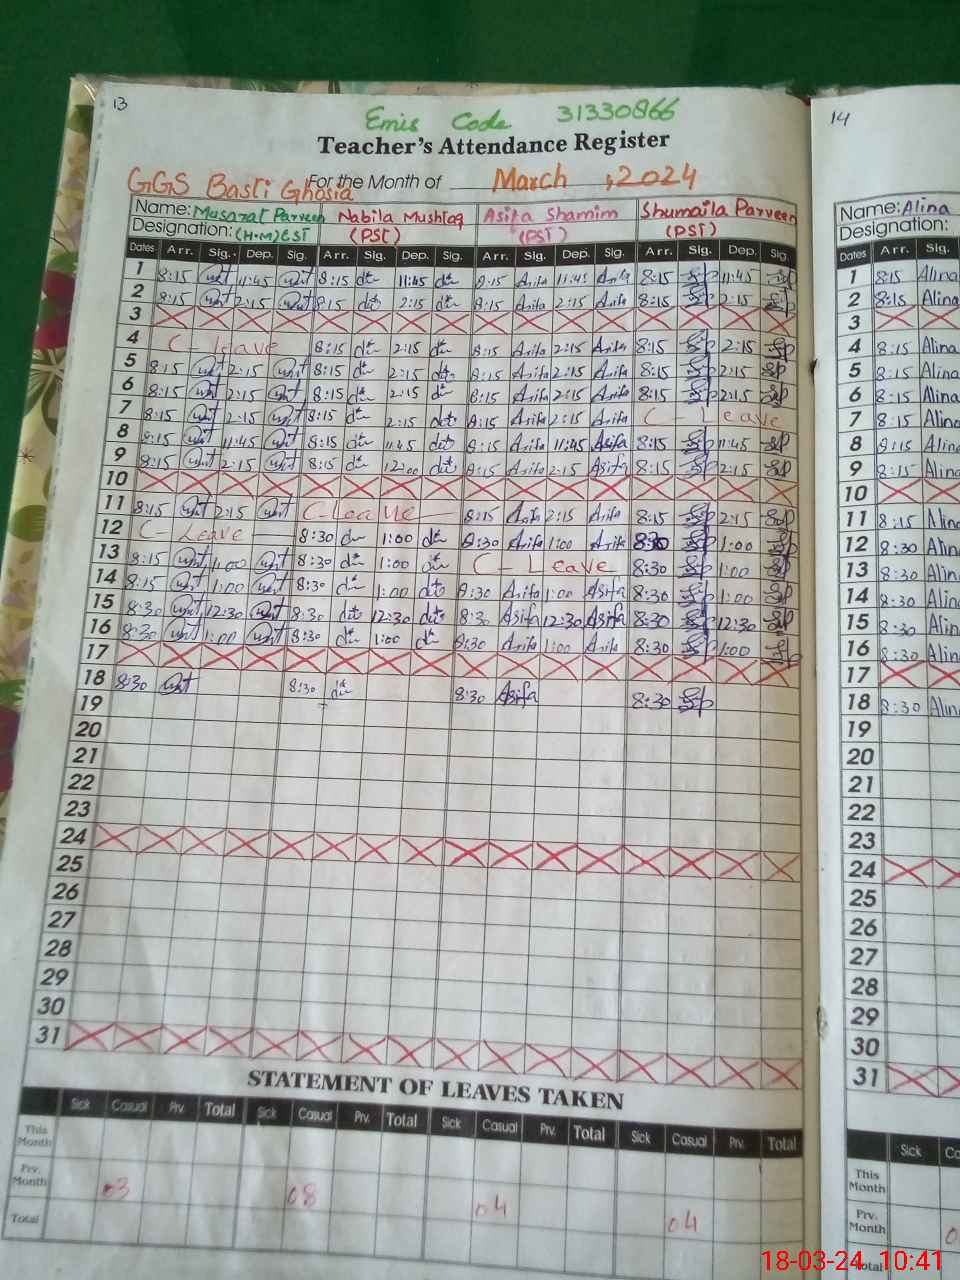 13
Emis Code 31330866
14
Teacher's Attendance Register
GGS Basti Ghosia For the Month of March, 2024
Name: Musarat Parveen Nabila Mushtaq Asifa Shamim Shumaila Parveen Name: Alina
Designation: (H.M) EST (PST) (PST) (PST) Designation:
Dates Arr. Sig. Dep. Sig. Arr. Sig. Dep. Sig. Arr. Sig. Dep. Sig. Arr. Sig. Dep. Sig. Dates Arr. Sig.
1 8:15 11:45 8:15 11:45 8:15 Asifa 11:45 Asifa 8:15 11:45 1 8:15 Alina
2 8:15 2:15 8:15 2:15 8:15 Asifa 2:15 Asifa 8:15 2:15 2 8:15 Alina
3 3
4 C-Leave 8:15 2:15 8:15 Asifa 2:15 Asifa 8:15 2:15 4 8:15 Alina
5 8:15 2:15 8:15 2:15 8:15 Asifa 2:15 Asifa 8:15 2:15 5 8:15 Alina
6 8:15 2:15 8:15 2:15 8:15 Asifa 2:15 Asifa 8:15 2:15 6 8:15 Alina
7 8:15 2:15 8:15 2:15 8:15 Asifa 2:15 Asifa C-Leave 7 8:15 Alina
8 8:15 11:45 8:15 11:45 8:15 Asifa 11:45 Asifa 8:15 11:45 8 8:15 Alina
9 8:15 2:15 8:15 12:00 8:15 Asifa 2:15 Asifa 8:15 2:15 9 8:15 Alina
10 10
11 8:15 2:15 C-Leave 8:15 Asifa 2:15 Asifa 8:15 2:15 11 8:15 Alina
12 C-Leave 8:30 1:00 8:30 Asifa 1:00 Asifa 8:30 1:00 12 8:30 Alina
13 8:15 1:00 8:30 1:00 C-Leave 8:30 1:00 13 8:30 Alina
14 8:15 1:00 8:30 1:00 8:30 Asifa 1:00 Asifa 8:30 1:00 14 8:30 Alina
15 8:30 12:30 8:30 12:30 8:30 Asifa 12:30 Asifa 8:30 12:30 15 8:30 Alina
16 8:30 1:00 8:30 1:00 8:30 Asifa 1:00 Asifa 8:30 1:00 16 8:30 Alina
17 17
18 8:30 8:30 8:30 Asifa 8:30 18 8:30 Alina
19 19
20 20
21 21
22 22
23 23
24 24
25 25
26 26
27 27
28 28
29 29
30 30
31 31
STATEMENT OF LEAVES TAKEN
Sick Casual Prv. Total Sick Casual Prv. Total Sick Casual Prv. Total Sick Casual Prv. Total Sick
This Month This Month
Prv. Month 03 08 04 04 Prv. Month
Total Total
18-03-24 10:41